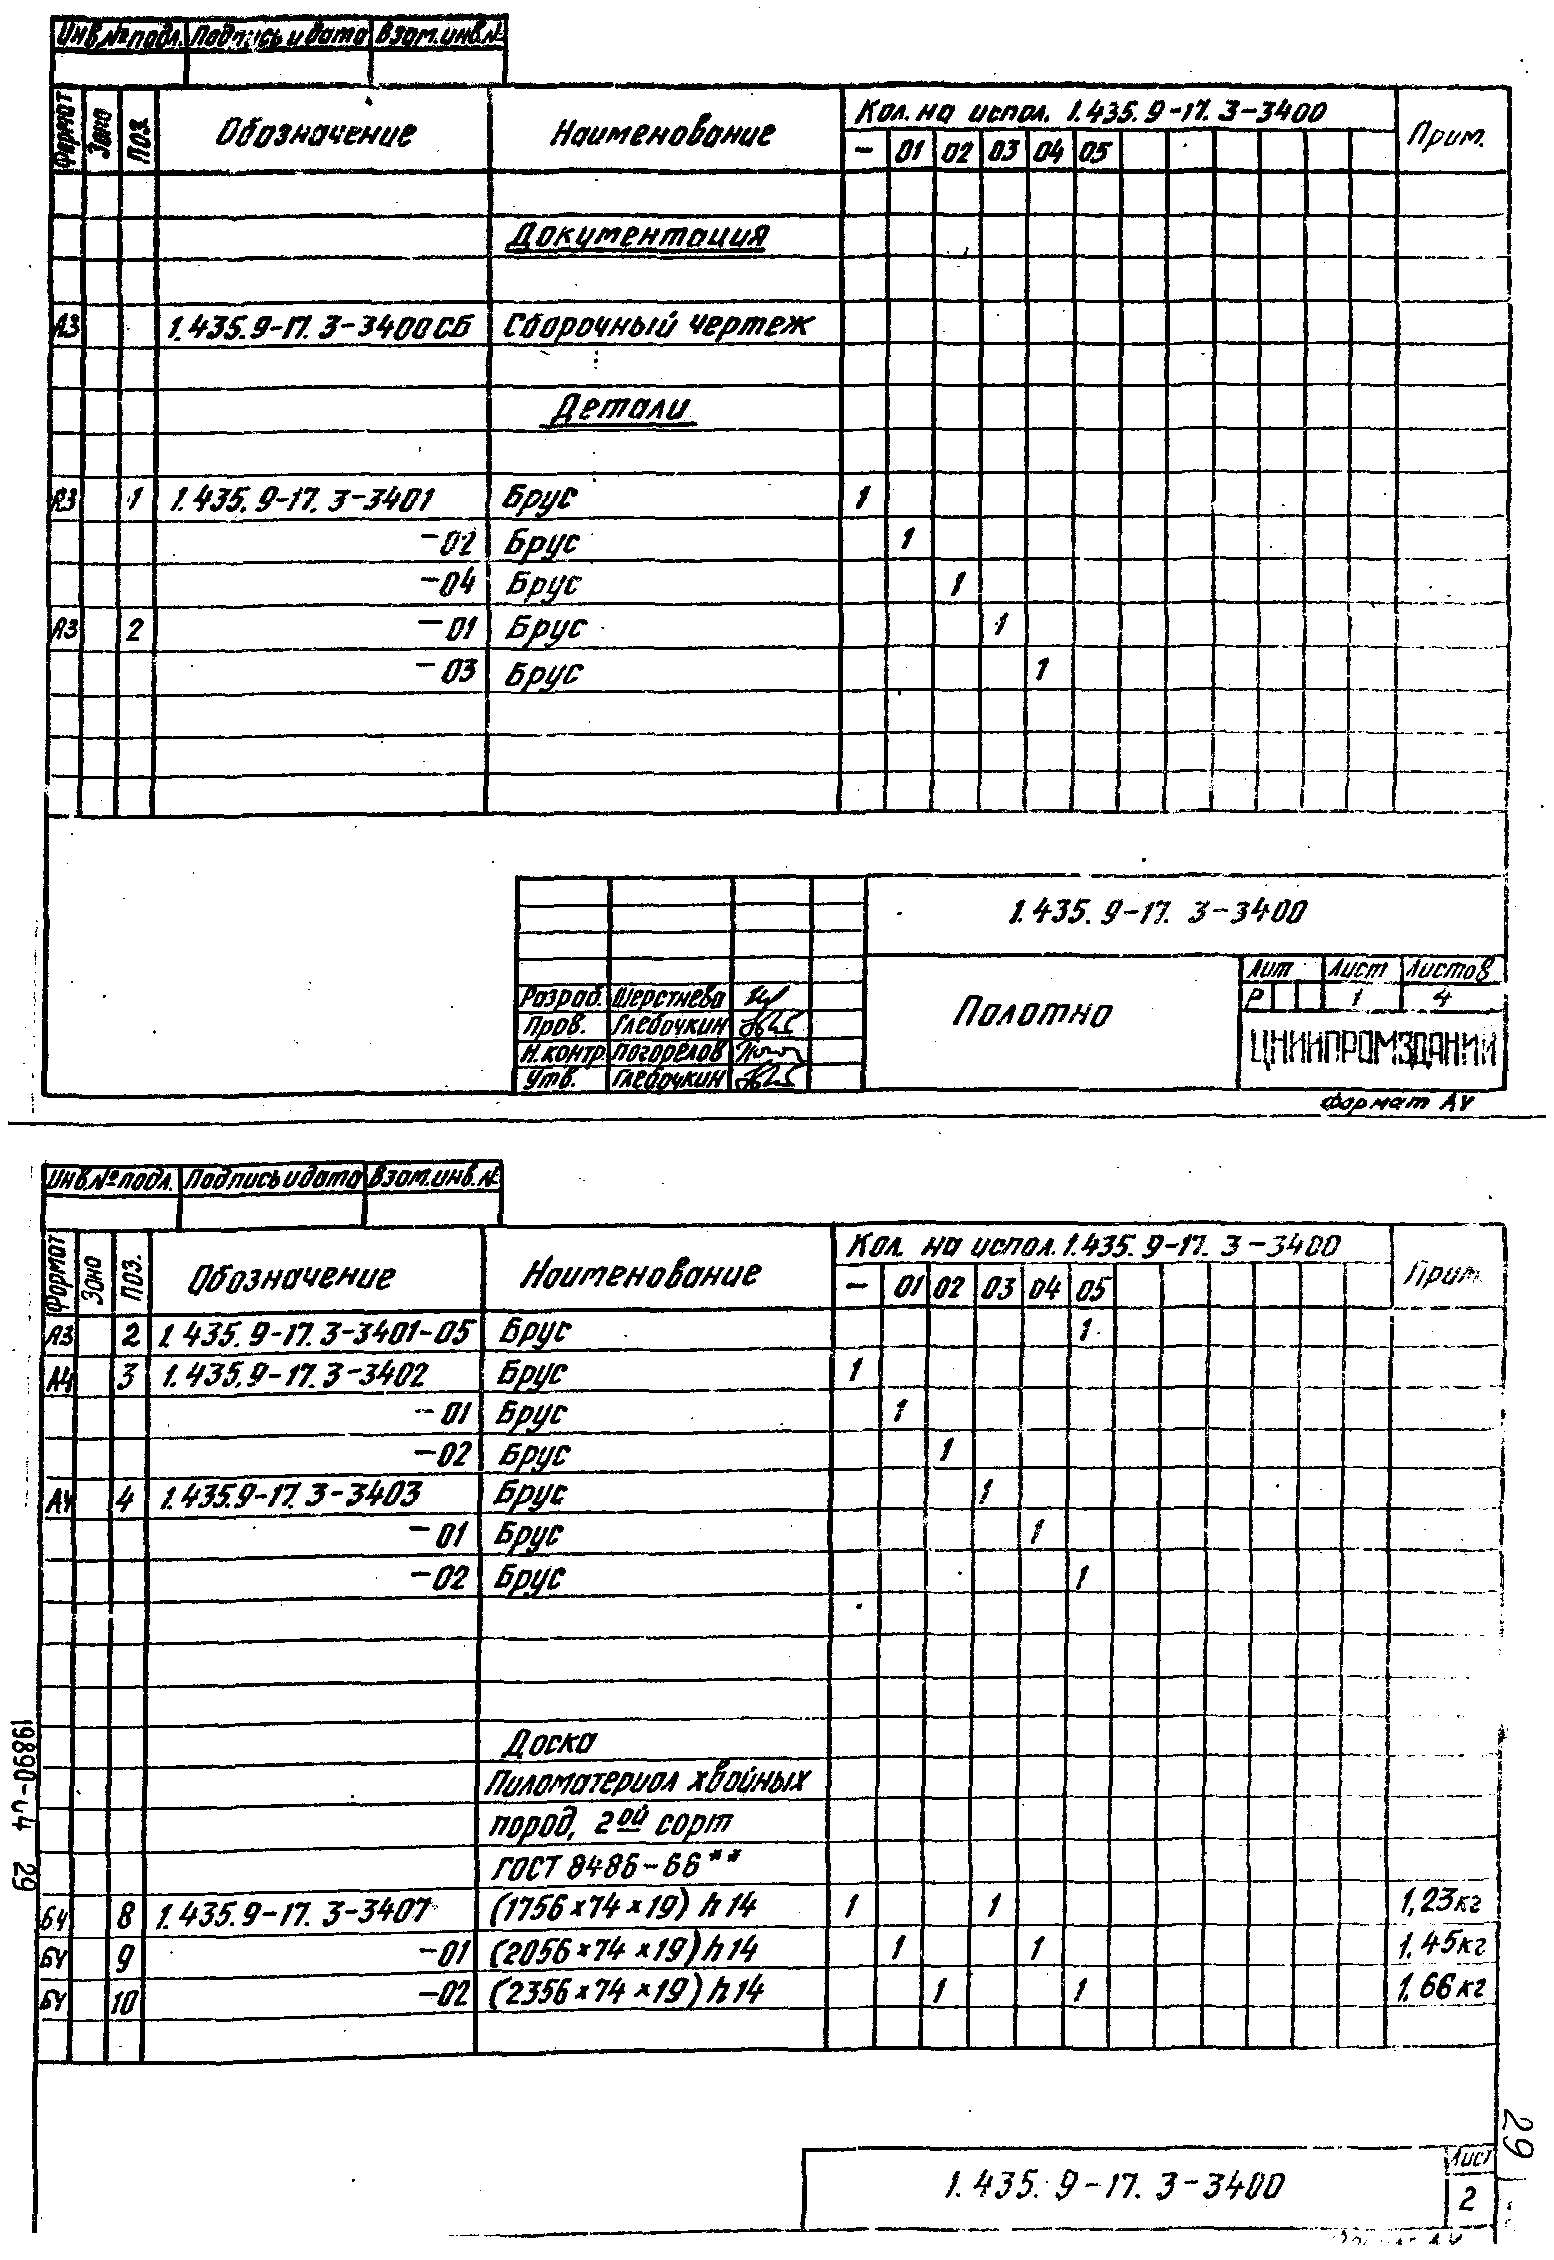 Инв.№ подл. Подпись и дата Взам.инв.№
Формат Зона Поз. Обозначение Наименование Кол. на испол. 1.435.9-17.3-3400 Прим.
— 01 02 03 04 05
Документация
А3 1.435.9-17.3-3400СБ Сборочный чертеж
Детали
А3 1 1.435.9-17.3-3401 Брус 1
-02 Брус 1
-04 Брус 1
А3 2 -01 Брус 1
-03 Брус 1
1.435.9-17.3-3400
Разраб. Шерстнева
Пров. Глебочкин
Н.контр. Погорелов
Утв. Глебочкин
Полотно
Лит Лист Листов
Р 1 4
ЦНИИПРОМЗДАНИЙ
Формат А4
Инв.№ подл. Подпись и дата Взам.инв.№
Формат Зона Поз. Обозначение Наименование Кол. на испол. 1.435.9-17.3-3400 Прим.
— 01 02 03 04 05
А3 2 1.435.9-17.3-3401-05 Брус 1
А4 3 1.435.9-17.3-3402 Брус 1
-01 Брус 1
-02 Брус 1
А4 4 1.435.9-17.3-3403 Брус 1
-01 Брус 1
-02 Брус 1
Доска
Пиломатериал хвойных
пород, 2ой сорт
ГОСТ 8486-66**
БЧ 8 1.435.9-17.3-3407 (1756×74×19) h14 1 1 1,23кг
БЧ 9 -01 (2056×74×19) h14 1 1 1.45кг
БЧ 10 -02 (2356×74×19) h14 1 1 1.66кг
19890-04 29
29
1.435.9-17.3-3400
Лист
2